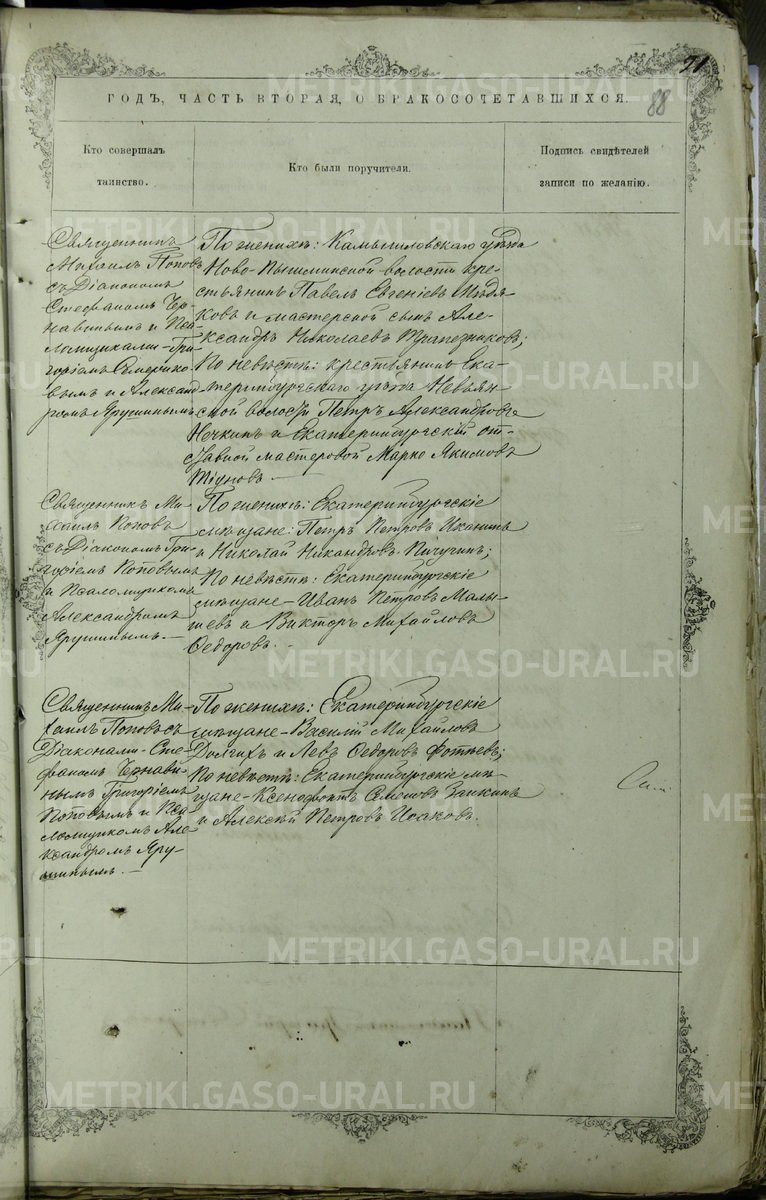 71
88
ГОДЪ, ЧАСТЬ ВТОРАЯ, О БРАКОСОЧЕТАВШИХСЯ.
Кто совершалъ
таинство.
Кто были поручители.
Подпись свидѣтелей
записи по желанію.
Священникъ
Михаилъ Поповъ
съ Діакономъ
Стефаномъ Чер-
навинымъ и Пса-
ломщиками - Гри-
горіемъ
вымъ и Александ-
ромъ Ярушинымъ
По женихѣ: Камышловскаго уѣзда
Ново-Пышминской волости кре-
стьянинъ Павелъ Евгеніевъ
ковъ и мастерской сынъ Але-
ксандръ Николаевъ Трапезниковъ;
По невѣстѣ: крестьянинъ Ека-
теринбургскаго уѣзда Невьян-
ской волости Петръ Александровъ
Нечкинъ и Екатеринбургскій от-
ставной мастеровой Марко Якимовъ
Тіуновъ. —
Священникъ Ми-
хаилъ Поповъ
съ Діакономъ Гри-
горіемъ Поповымъ
и Псаломщикомъ
Александромъ
Ярушинымъ. —
По женихѣ: Екатеринбургскіе
мѣщане: Петръ Петровъ
и Николай Никандровъ Пичугинъ;
По невѣстѣ: Екатеринбургскіе
мѣщане - Иванъ Петровъ Малы-
шевъ и Викторъ Михайловъ
Ѳедоровъ.
Священникъ Ми-
хаилъ Поповъ съ
Діаконами - Сте-
фаномъ Чернави-
нымъ Григоріемъ
Поповымъ и Пса-
ломщикомъ Але-
ксандромъ Яру-
шинымъ. —
По женихѣ: Екатеринбургскіе
мѣщане - Василій Михайловъ
Долгихъ и Левъ Ѳедоровъ Фотіевъ;
По невѣстѣ: Екатеринбургскіе мѣ-
щане - Ксенофонтъ Семеновъ
и Алексѣй Петровъ Исаковъ.
METRIKI.GASO-URAL.RU
METRIKI.GASO-URAL.RU
METRIKI.GASO-URAL.RU
METRIKI.GASO-URAL.RU
METRIKI.GASO-URAL.RU
METRIKI.GASO-URAL.RU
METRIKI.GASO-URAL.RU
METRIKI.GASO-URAL.RU